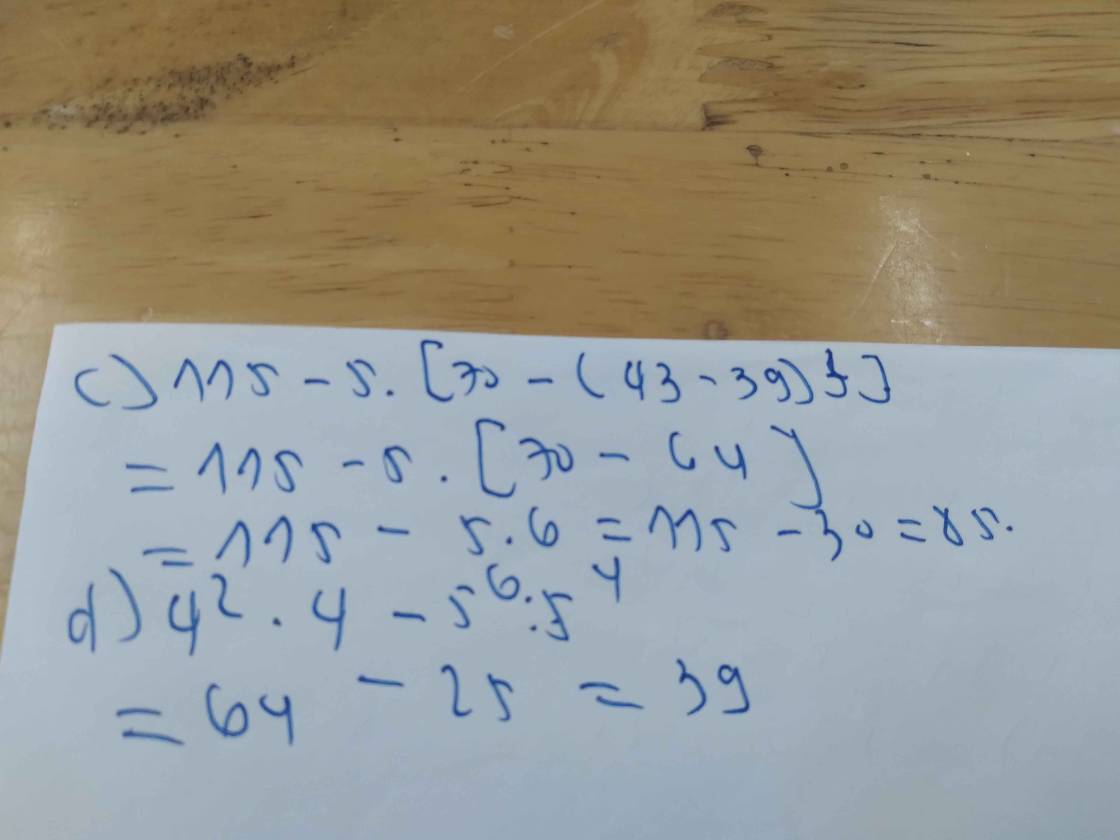 c) 115 - 5. [70 - (43 - 39)3]
= 115 - 5. [70 - 64]
= 115 - 5.6 = 115 - 30 = 85.
d) 4² . 4 - 5⁶ : 5⁴
= 64 - 25 = 39